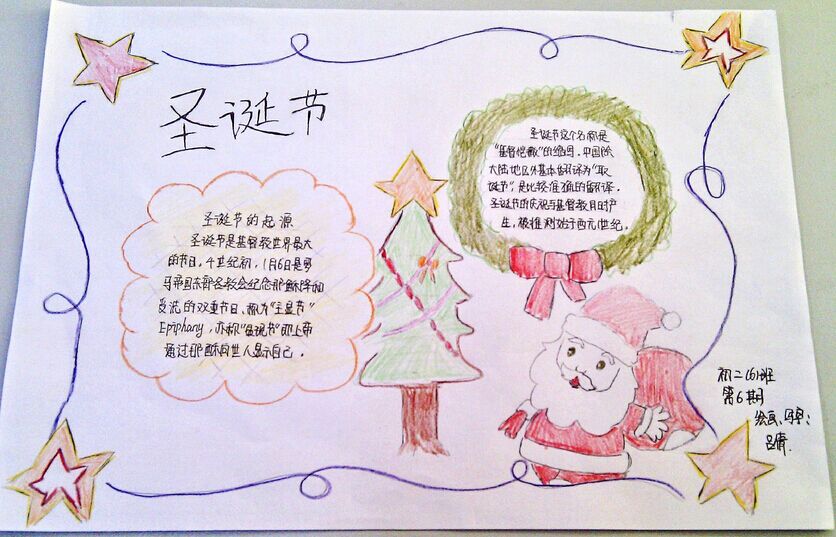 圣诞节
圣诞节的起源
圣诞节是基督教世界最大
的节日，4世纪初，1月6日是罗
马帝国东部各教会纪念耶稣降和
受洗的双重节日、称为"主显节"
Epiphany，亦称"显现节"即上帝
通过耶稣向世人显示自己。
圣诞节这个名称是
"基督弥撒"的缩写，中国除
大陆地区外基本翻译为"耶
诞节"，是比较准确的翻译。
圣诞节的庆祝与基督教同时产
生，被推测始于西元1世纪。
初二（6）班
第6期
绘画、写字：